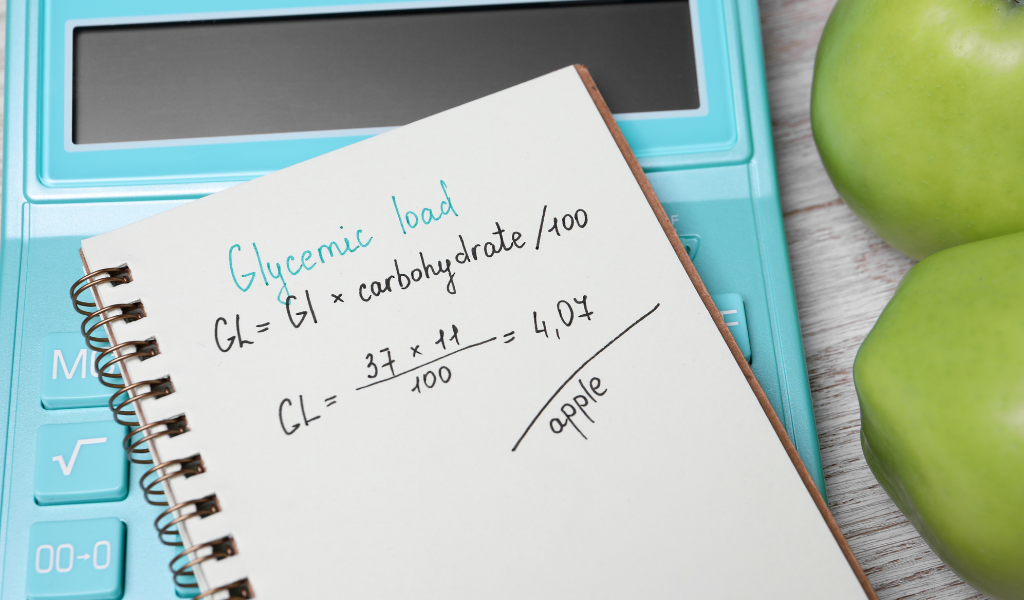 Glycemic load
GL = GI × carbohydrate / 100
GL = 37 × 11 / 100 = 4,07
apple
√
00→0
=